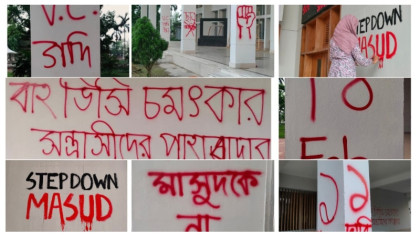 V.C.
ডাদি
STEP DOWN
MASUD
বাহ ভিসি চমৎকার
সন্ত্রাসীদের পাহারাদার
10
Feb
STEP DOWN
MASUD
মাসুদকে
না
১৯